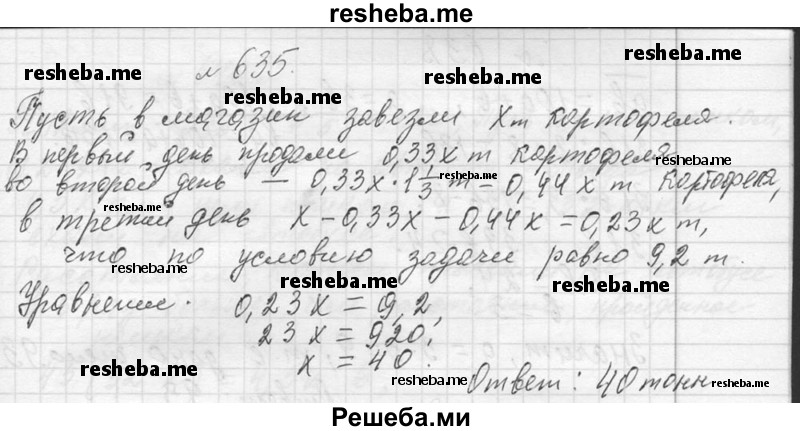 resheba.me
№ 635.
resheba.me resheba.me resheba.me
resheba.me
Пусть в магазин завезли x т картофеля.
В первый день продали 0,33x т картофеля
во второй день — 0,33x · 1 1/3 т = 0,44x т картофеля,
в третий день x - 0,33x - 0,44x = 0,23x т,
что по условию задачи равно 9,2 т.
resheba.me resheba.me resheba.me
Уравнение. 0,23x = 9,2,
23x = 920,
x = 40.
resheba.me resheba.me resheba.me
Ответ: 40 тонн
Решеба.ми